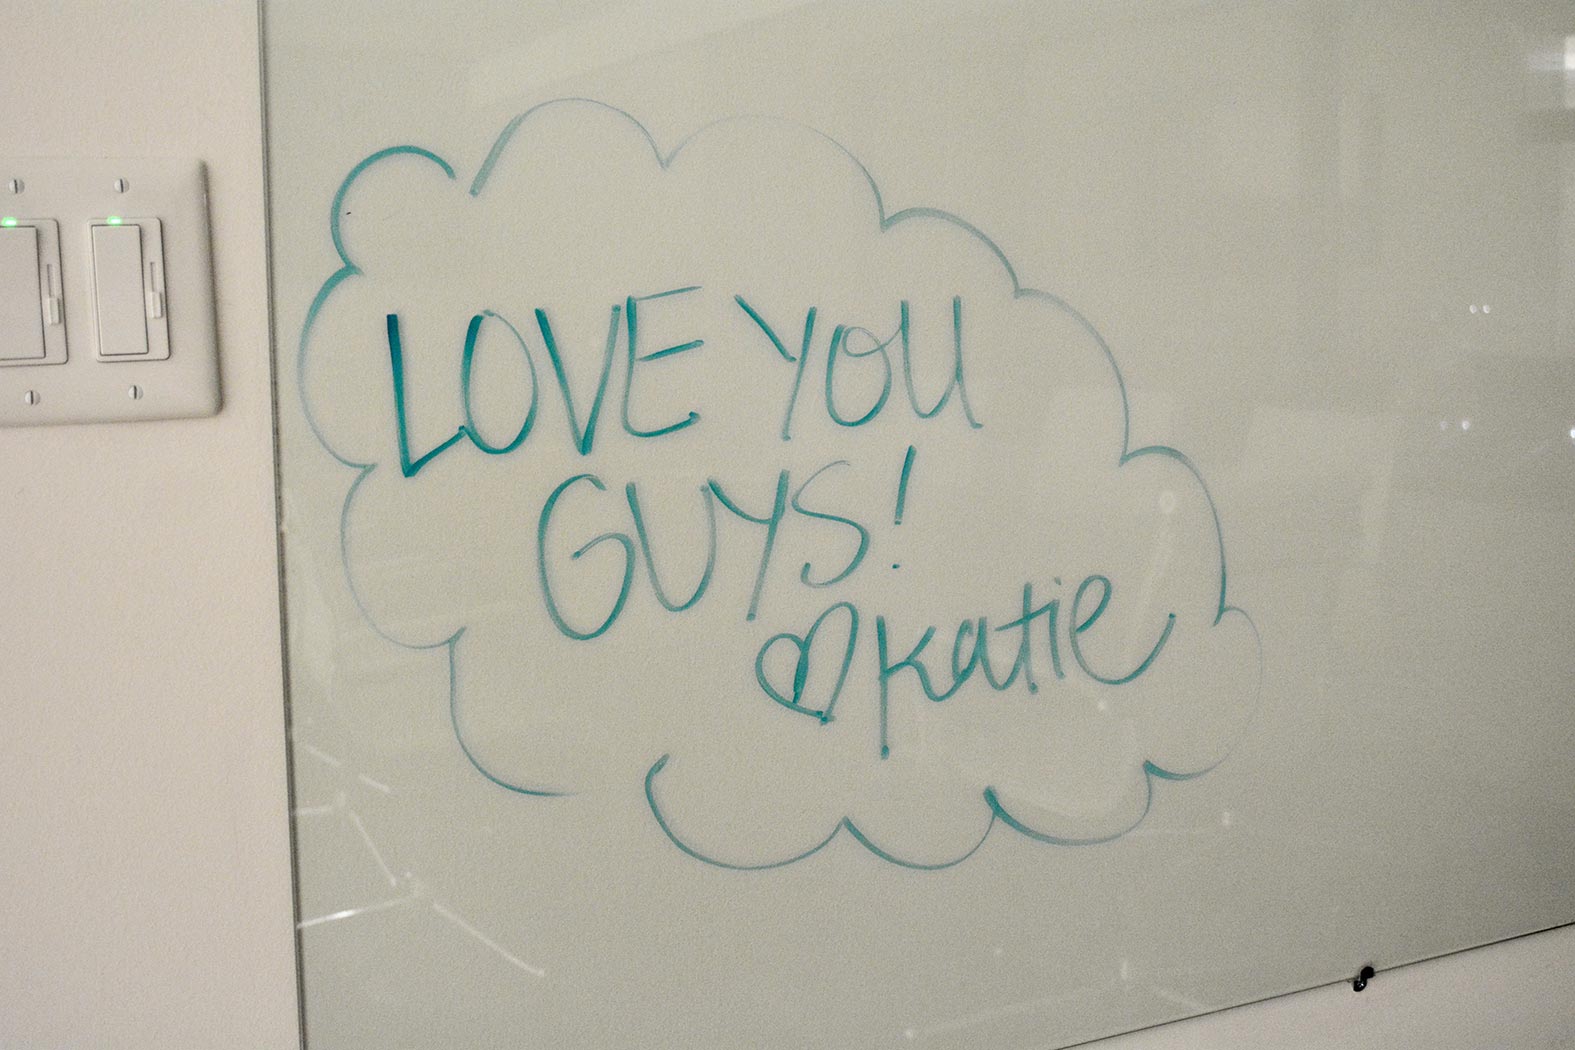 LOVE YOU
GUYS!
♡Katie